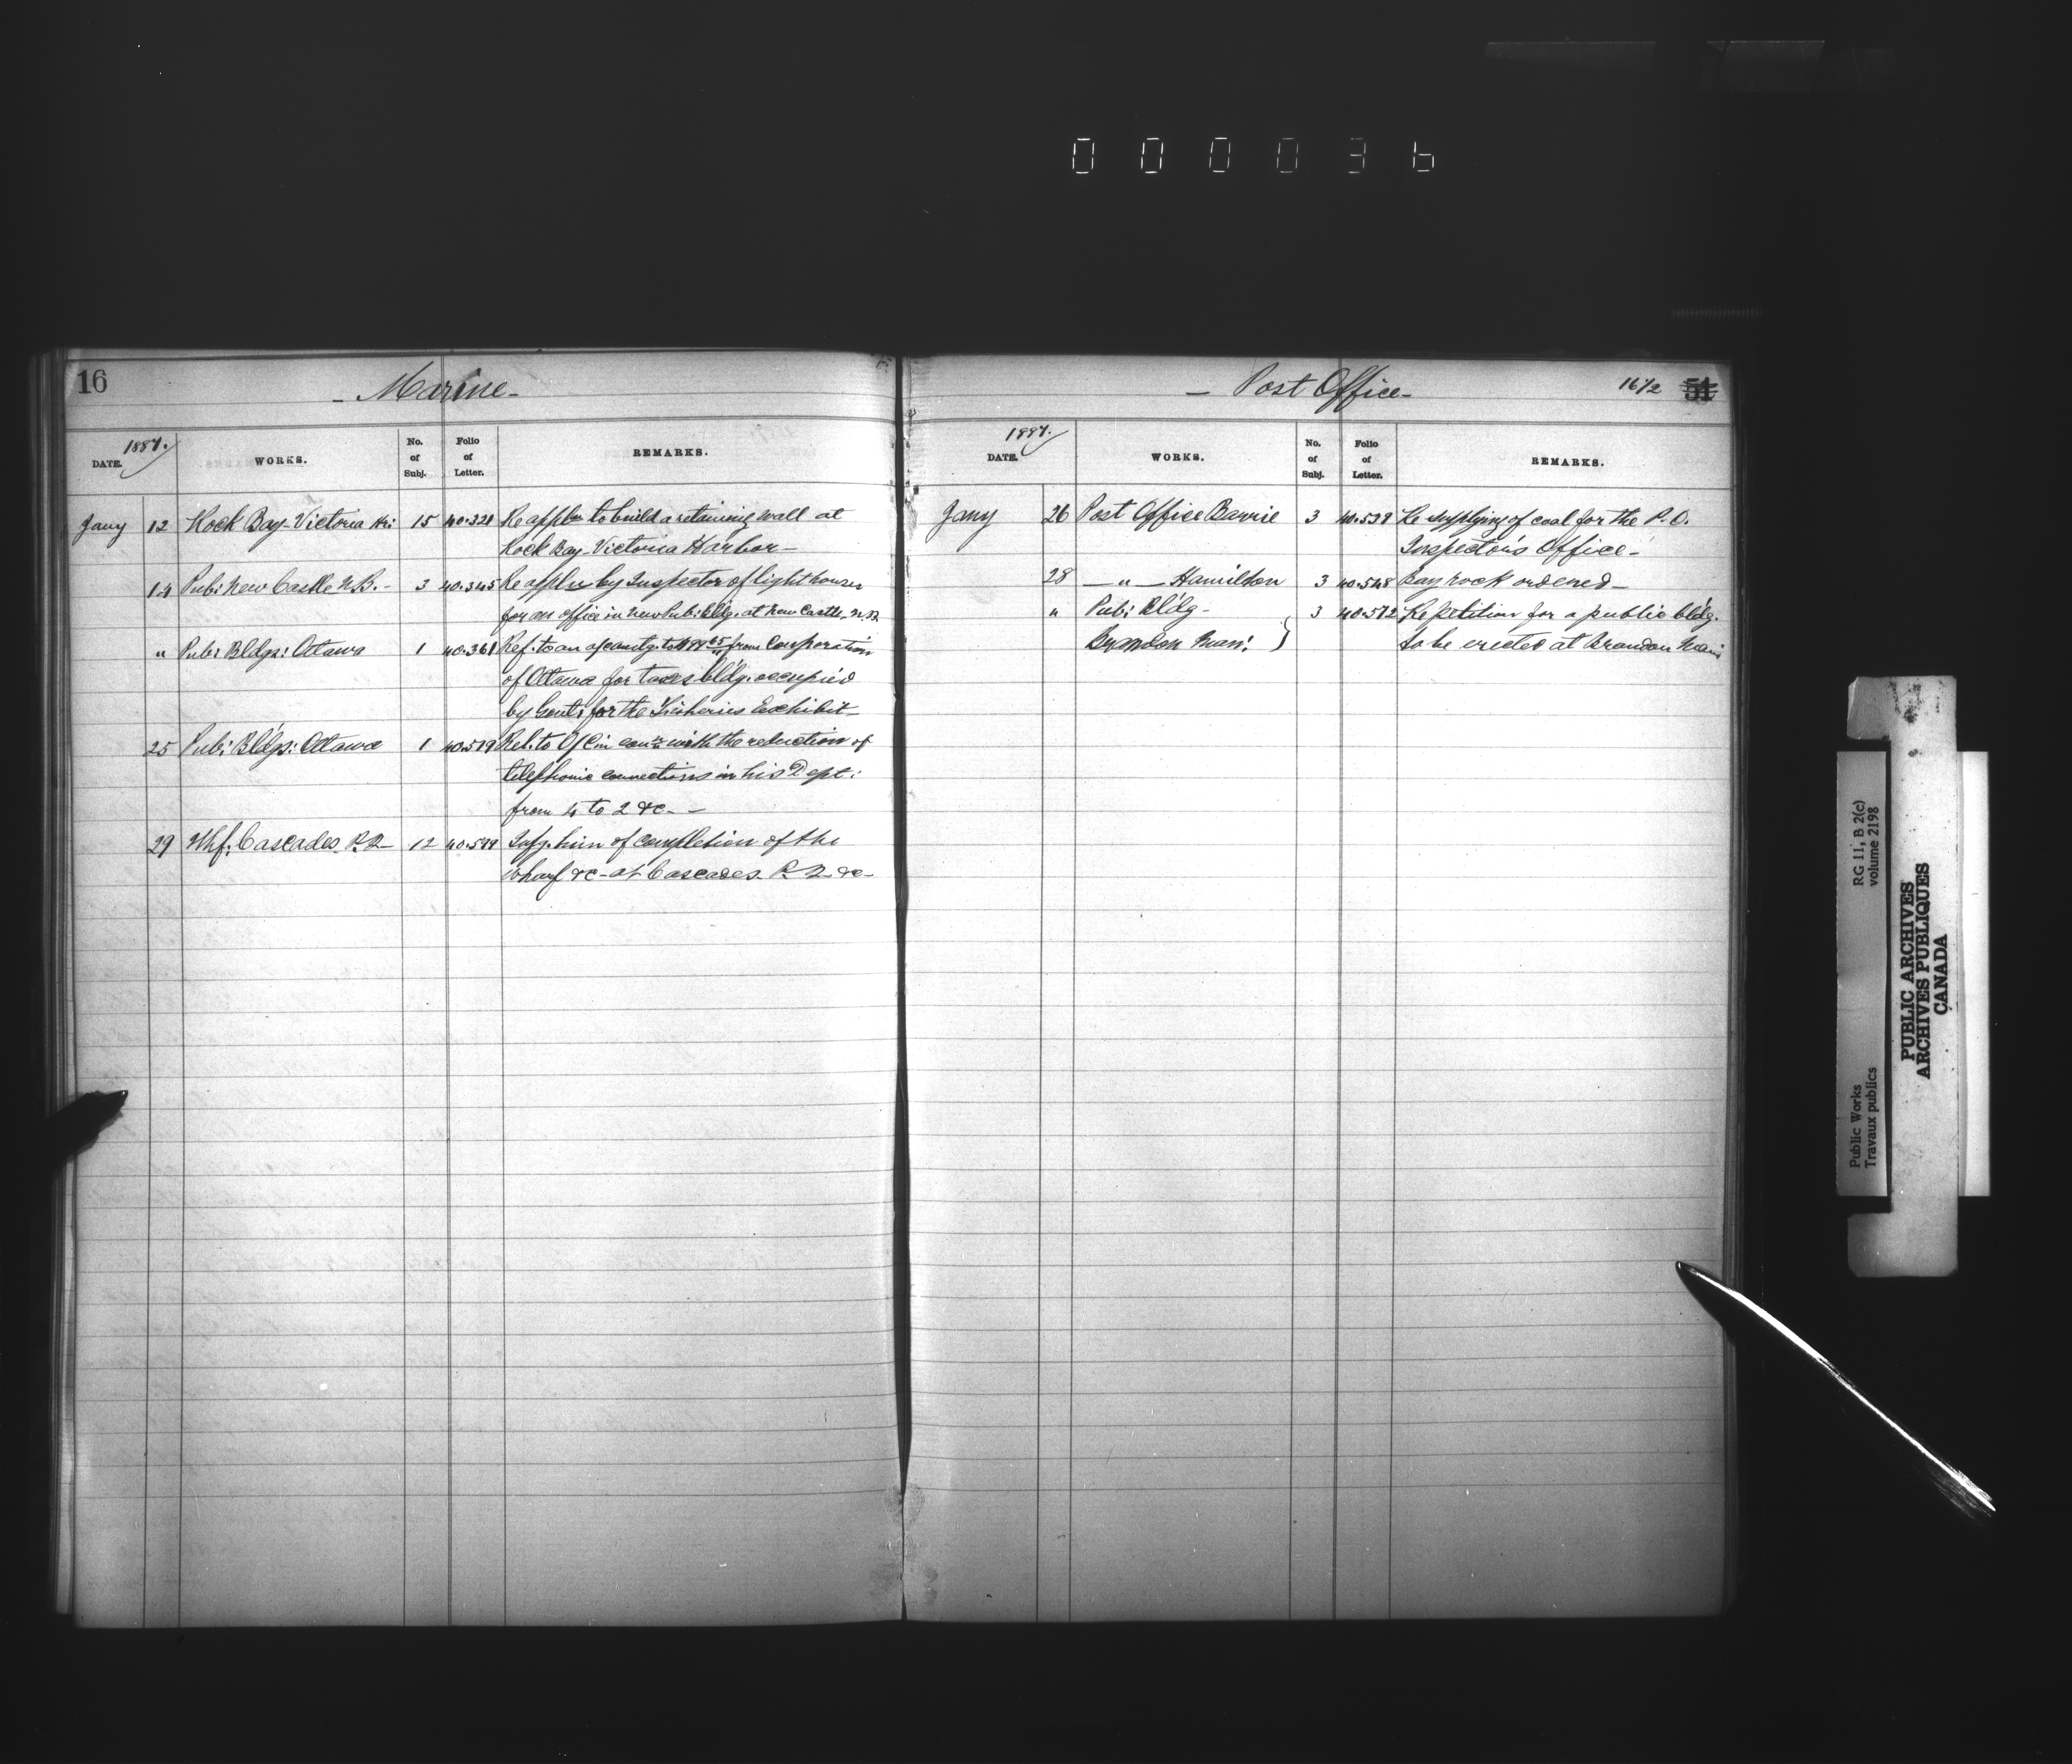 000036
16
- Marine -
1887.
DATE.
WORKS.
No. of Subj.
Folio of Letter.
REMARKS.
Jany 12 Rock Bay - Victoria Hr: 15 40.321 Re appln to build a retaining wall at
Rock Bay - Victoria Harbor -
14 Pub: New Castle N.B. - 3 40.345 Re appln by Inspector of light houses
for an office in New Pub: bldg. at New Castle, N.B.
" Pub: Bldgs: Ottawa 1 40.361 Ref. to an from Corporation
of Ottawa for taxes bldg. occupied
by Govt: for the Fisheries Exhibit -
25 Pub: Bldgs: Ottawa 1 40.519 Rel. to O/C in con: with the reduction of
telephonic connections in his Dept:
from 4 to 2 &c. -
29 Whf: Cascades P.Q. 12 40.599 Infg. him of completion of the
wharf &c - at Cascades P.Q. &c -
- Post Office -
16 1/2 51
1887.
DATE.
WORKS.
No. of Subj.
Folio of Letter.
REMARKS.
Jany 26 Post Office Barrie 3 40.539 Re supplying of coal for the P.O.
Inspector's Office -
28 — " — Hamilton 3 40.548 ordered -
" Pub: Bldg - 3 40.572 Re petition for a public bldg.
Brandon Man: } to be erected at Brandon Man:
RG 11, B 2(c)
volume 2198
Public Works
Travaux publics
PUBLIC ARCHIVES
ARCHIVES PUBLIQUES
CANADA